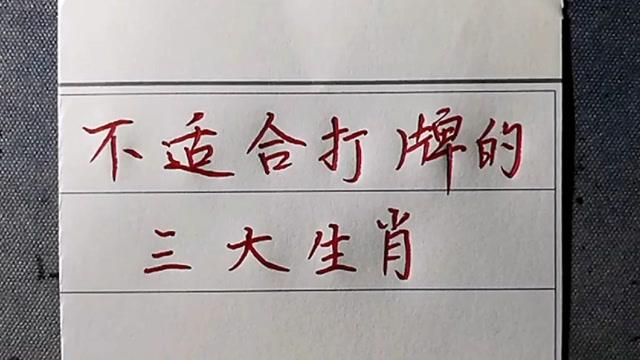 不适合打牌的
三大生肖